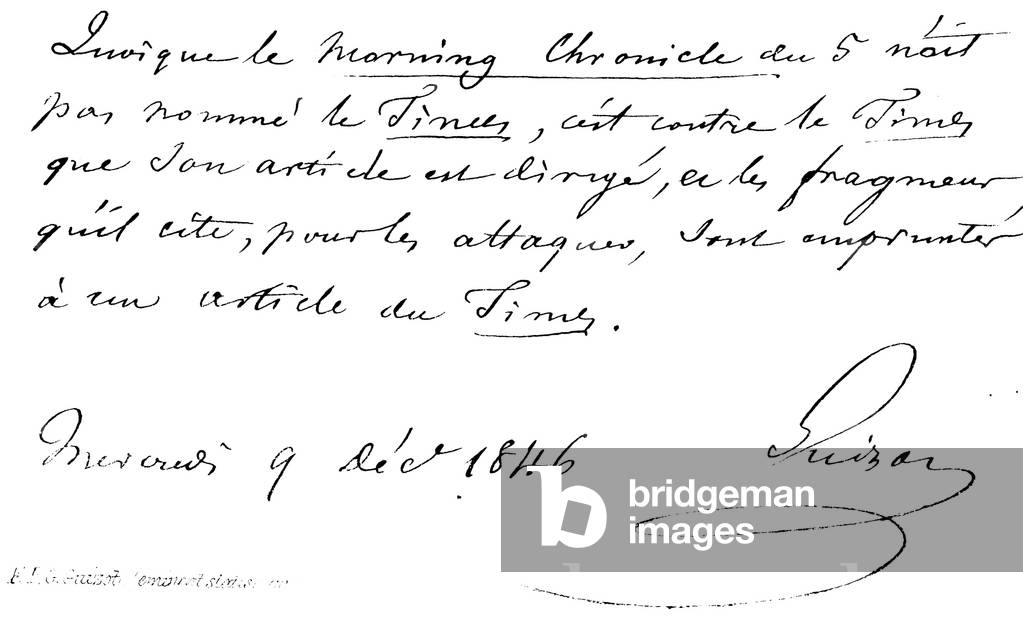 Quoique le Morning Chronicle du 5 n'ait
pas nommé le Times, c'est contre le Times
que son article est dirigé, et les fragmens
qu'il cite, pour les attaquer, sont empruntés
à un article du Times.
Mercredi 9 Déc. 1846
Guizot
bridgeman
images
F. P. G. Guizot eminent states